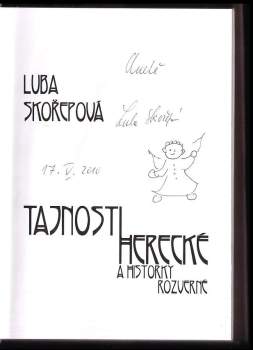 Anetě
LUBA
SKOŘEPOVÁ
Luba Skořep
17. V. 2010
TAJNOSTI
HERECKÉ
A HISTORKY
ROZVERNÉ